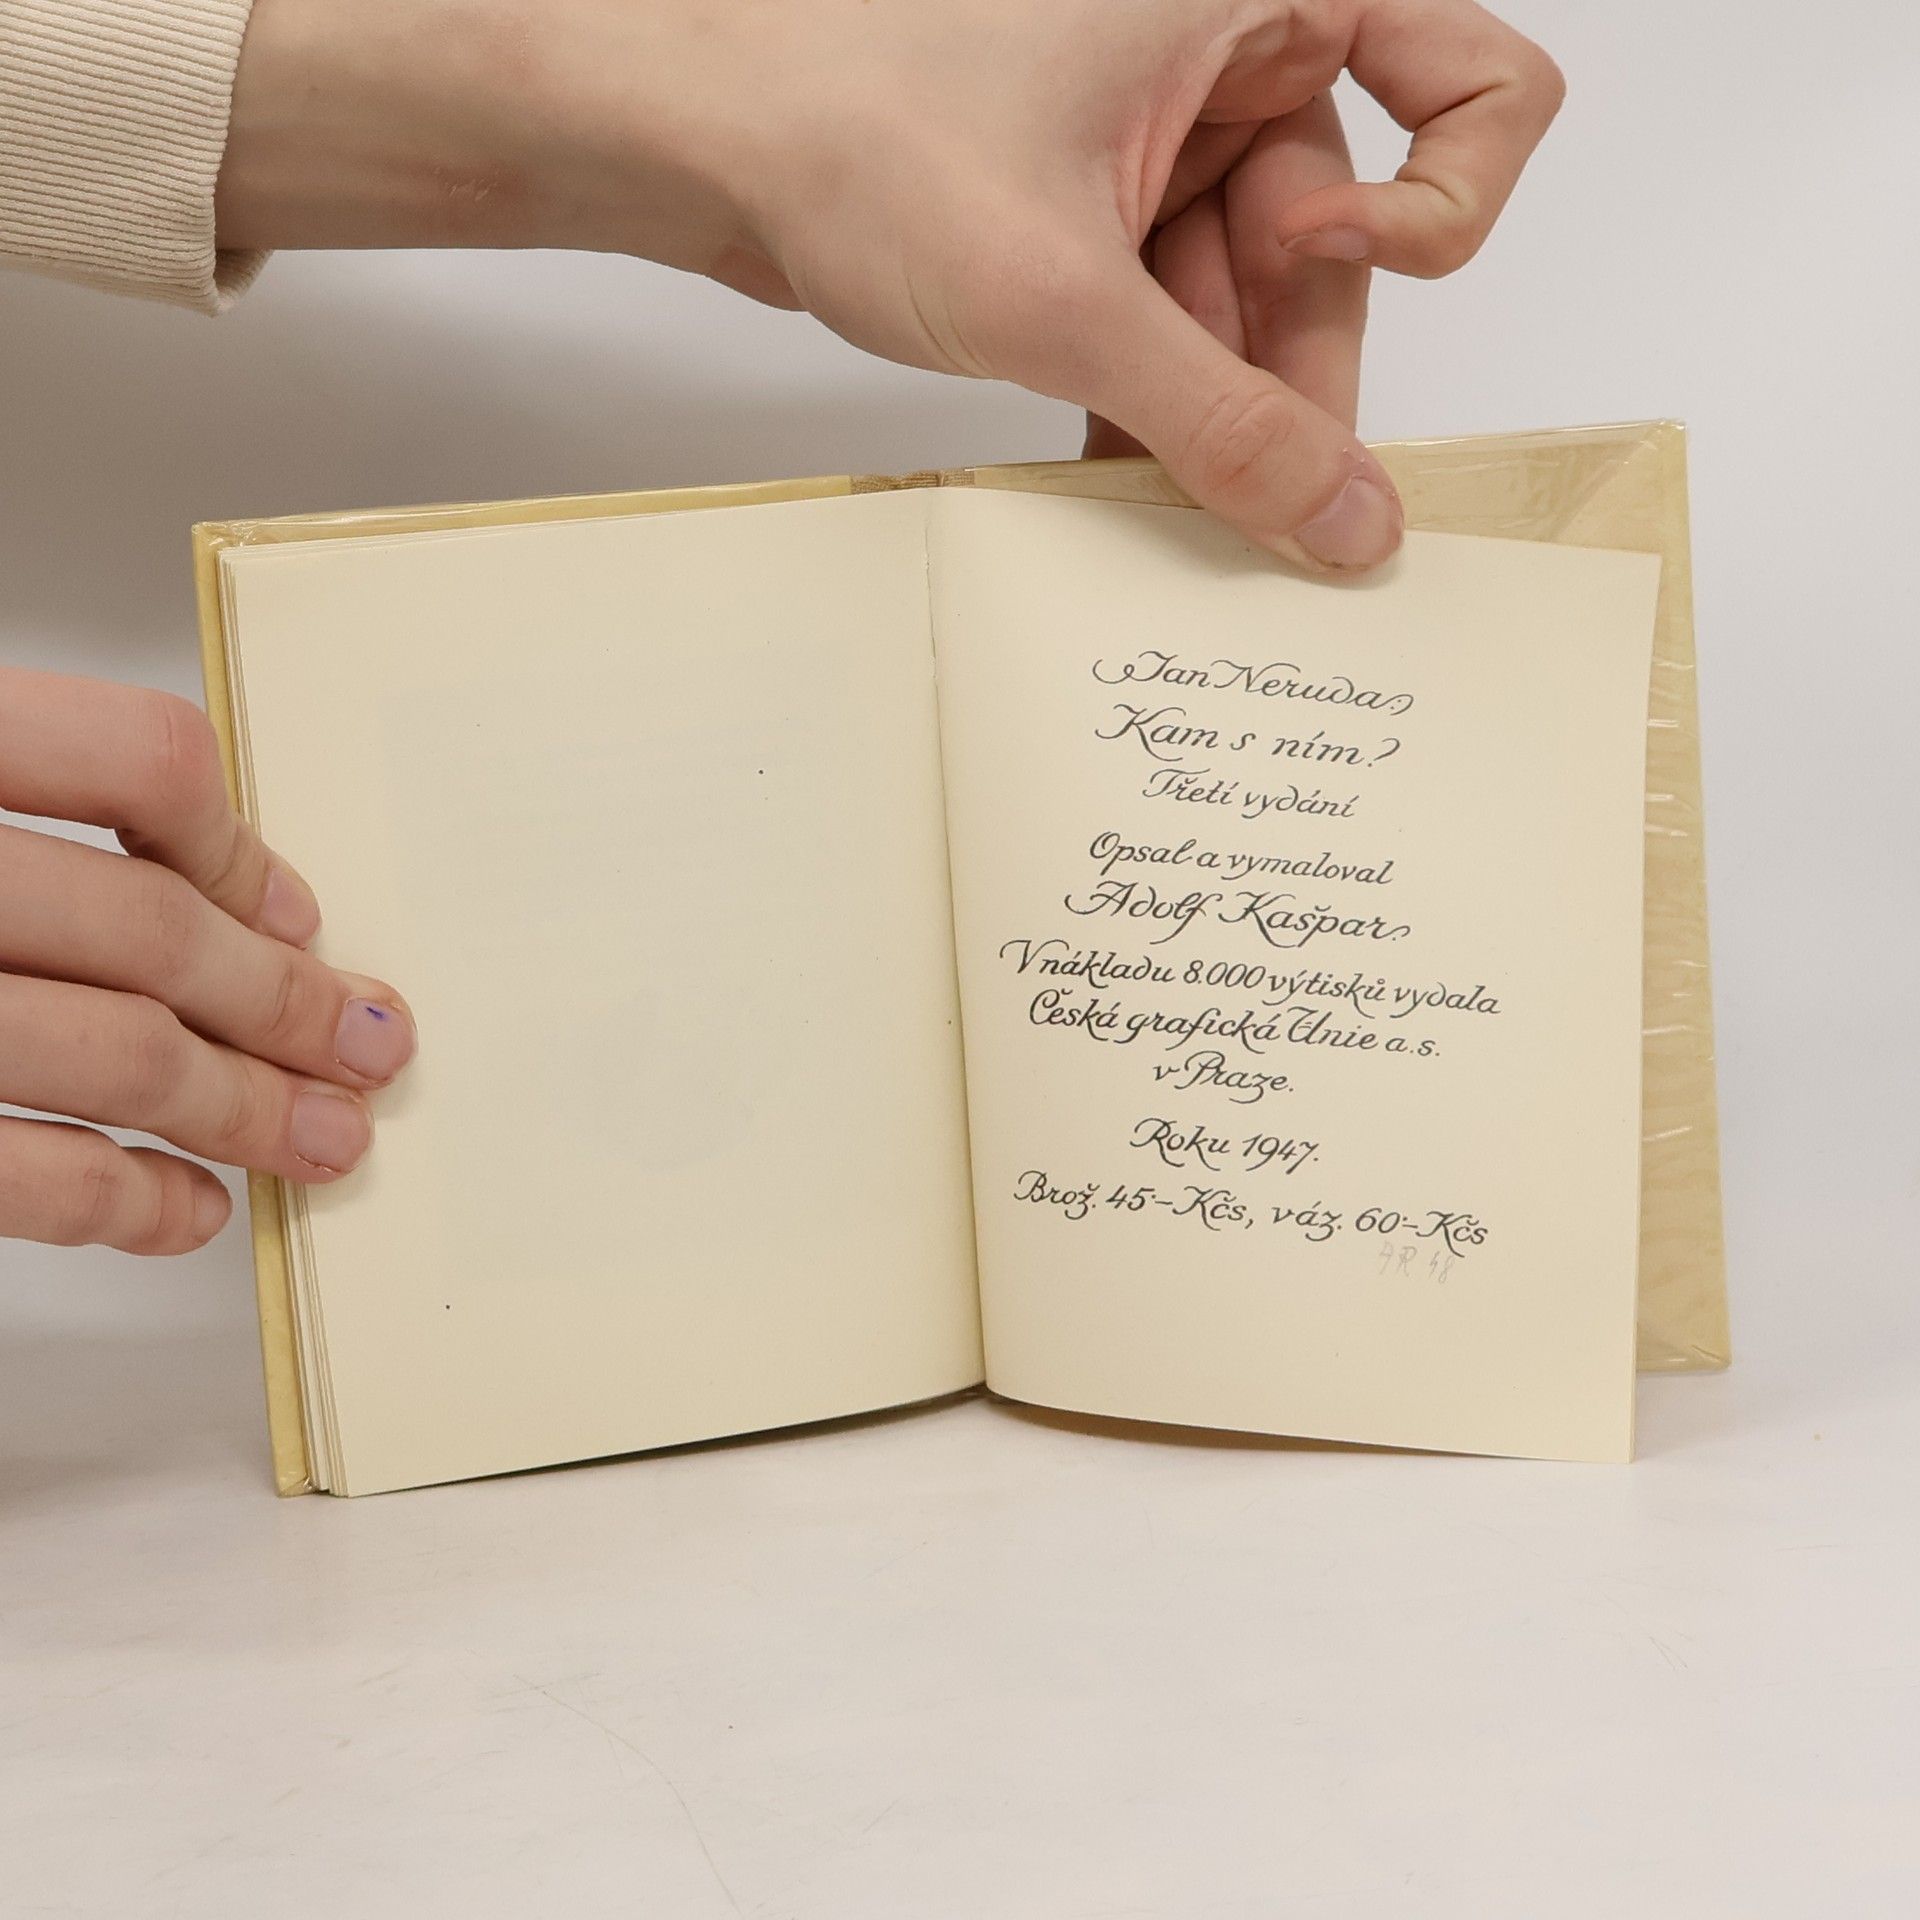 Jan Neruda:
Kam s ním?
Třetí vydání
Opsal a vymaloval
Adolf Kašpar.
V nákladu 8.000 výtisků vydala
Česká grafická Unie a.s.
v Praze.
Roku 1947.
Brož. 45·– Kčs, váz. 60·– Kčs
48